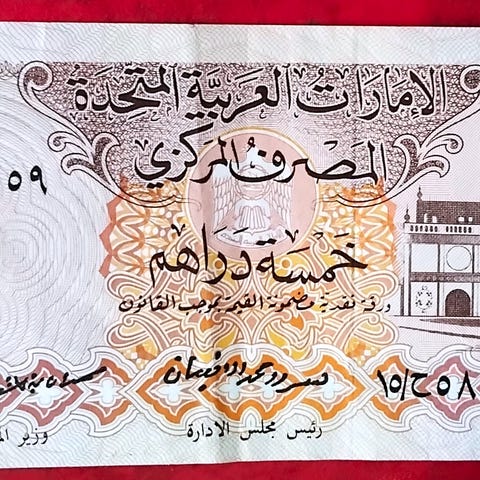 الإمارات العربية المتحدة
المصرف المركزي
٥٩
خمسة دراهم
ورقة نقدية مضمونة القيمة بموجب القانون
١٥/ح٥٨
رئيس مجلس الادارة
وزير